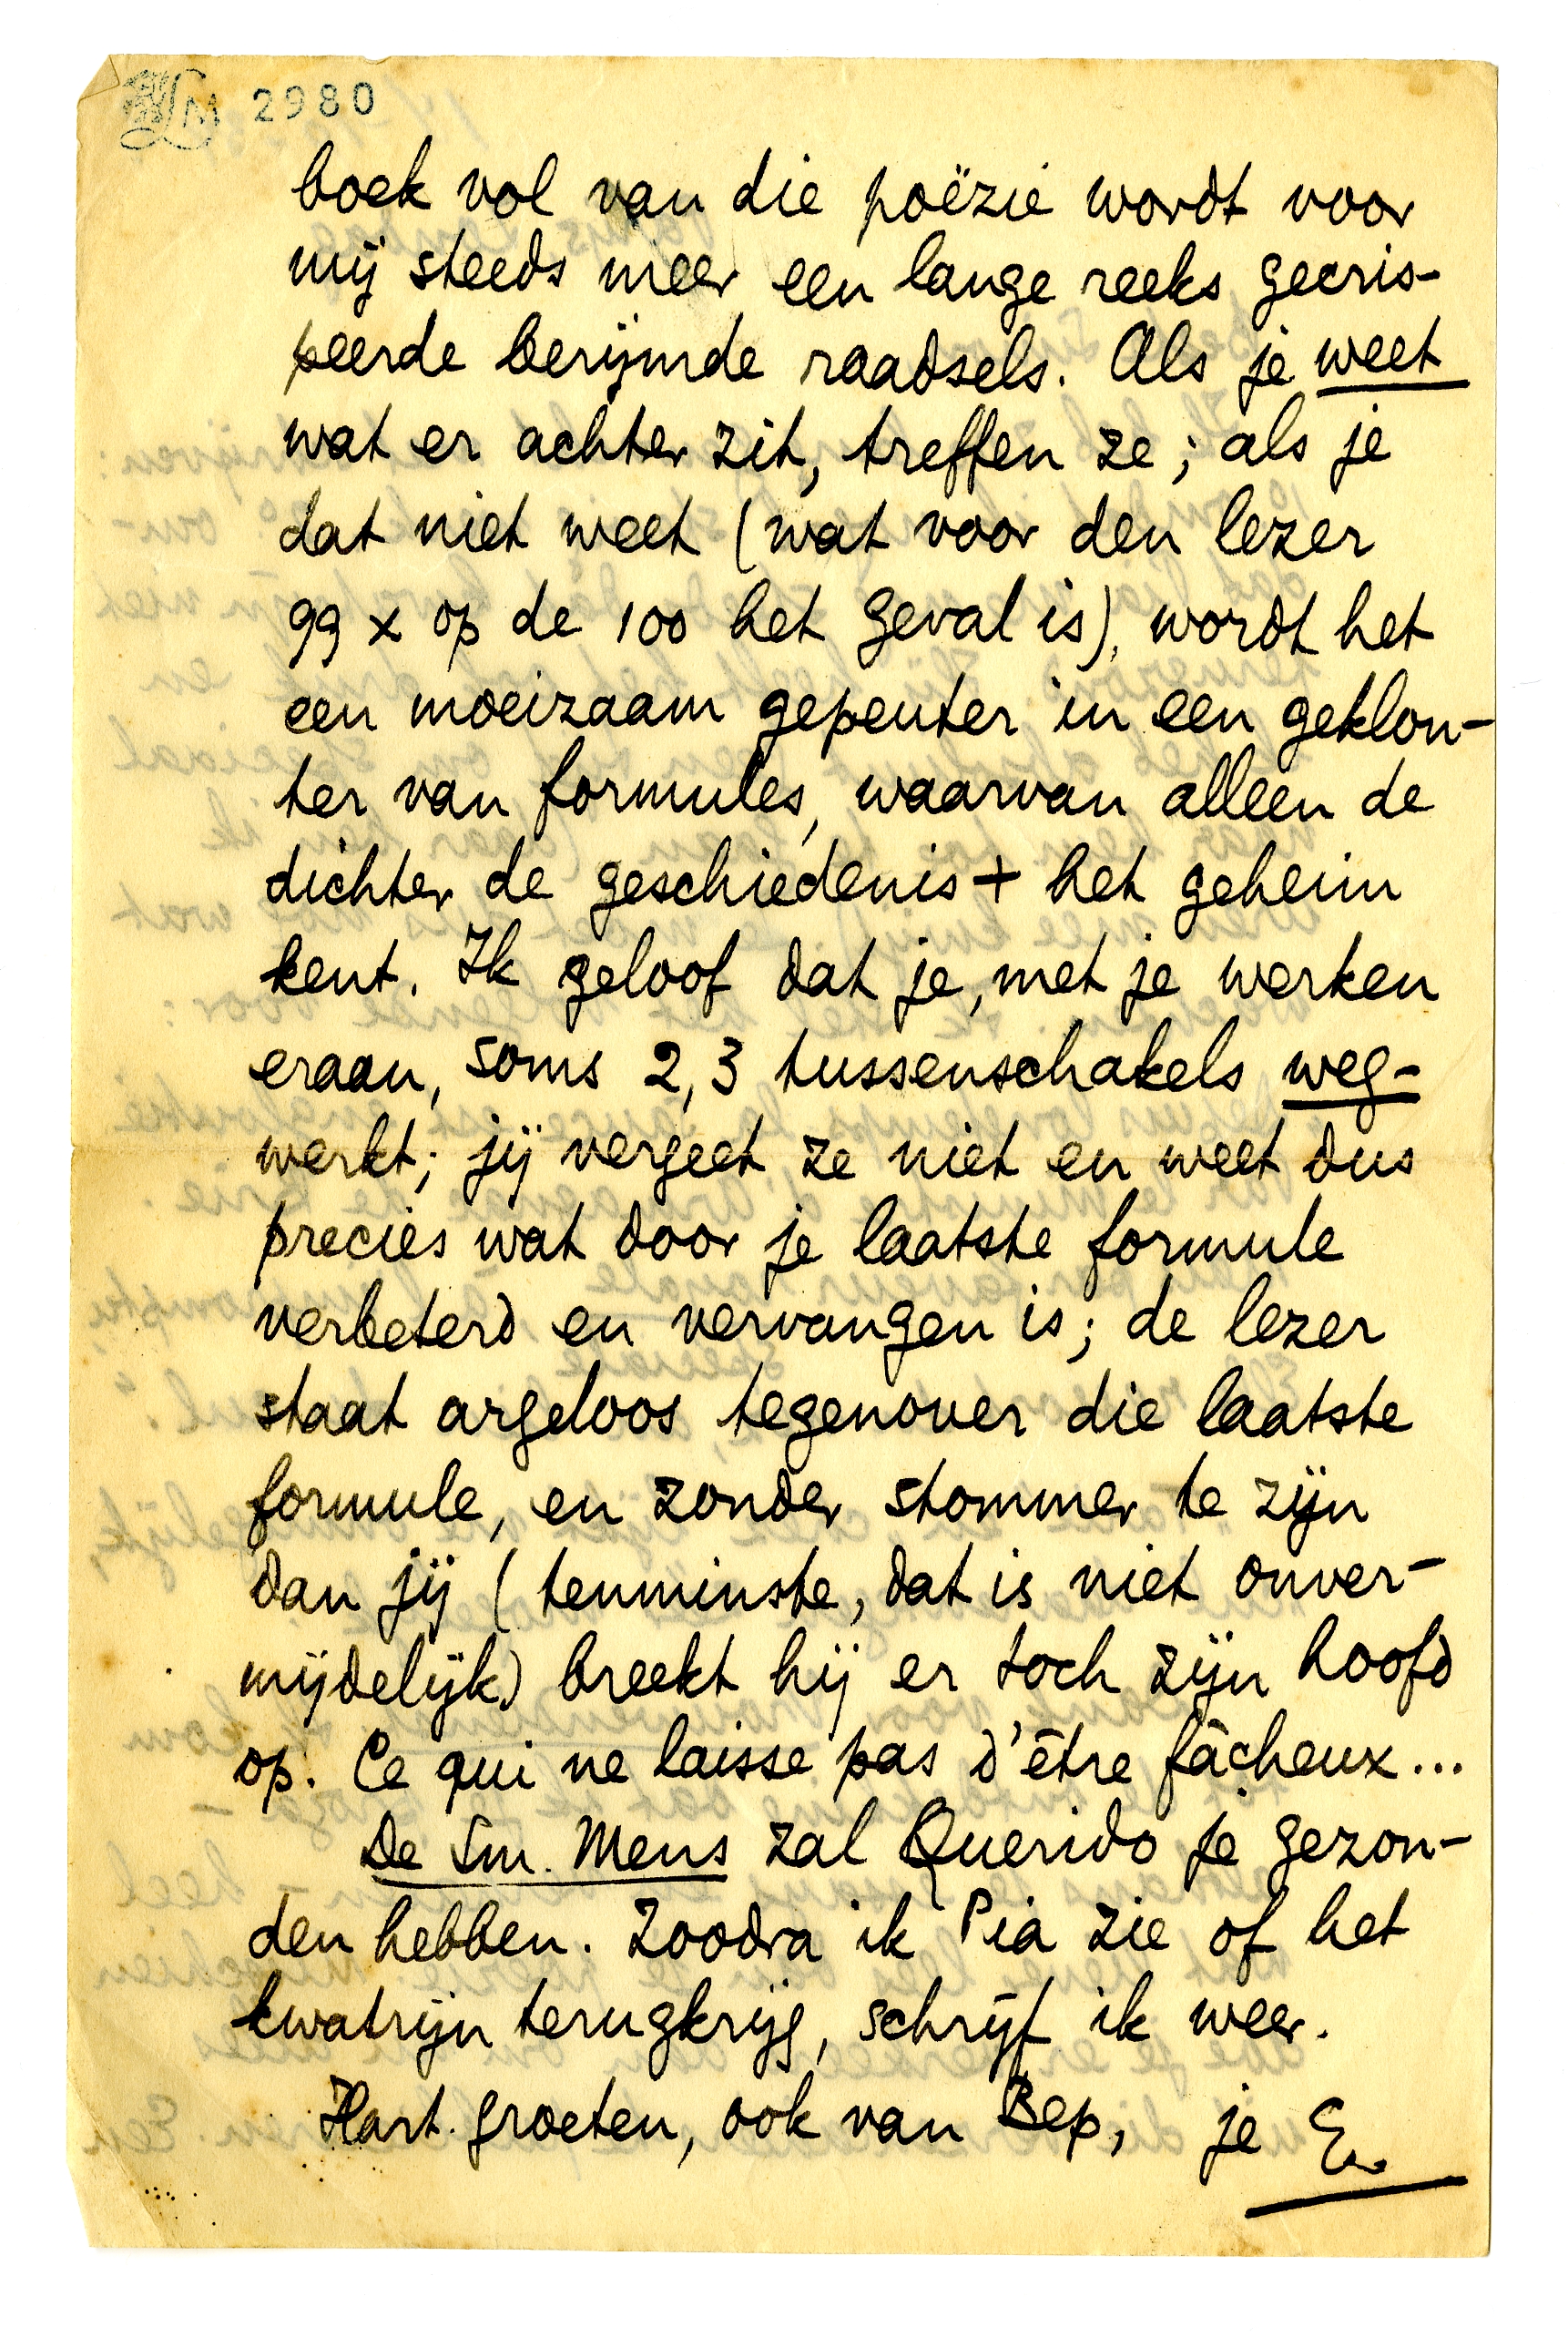 LM 2980
boek vol van die poëzie wordt voor
mij steeds meer een lange reeks gecris-
peerde berijmde raadsels. Als je weet
wat er achter zit, treffen ze; als je
dat niet weet (wat voor den lezer
99 x op de 100 het geval is), wordt het
een moeizaam gepeuter in een geklon-
ter van formules, waarvan alleen de
dichter de geschiedenis + het geheim
kent. Ik geloof dat je, met je werken
eraan, soms 2, 3 tussenschakels weg-
werkt; jij vergeet ze niet en weet dus
precies wat door je laatste formule
verbeterd en vervangen is; de lezer
staat argeloos tegenover die laatste
formule, en zonder stommer te zijn
dan jij (tenminste, dat is niet onver-
mijdelijk) breekt hij er toch zijn hoofd
op. Ce qui ne laisse pas d'être fâcheux...
De Sm. Mens zal Querido je gezon-
den hebben. Zoodra ik Pia zie of het
kwatrijn terugkrijg, schrijf ik weer.
Hart. groeten, ook van Bep, je E.